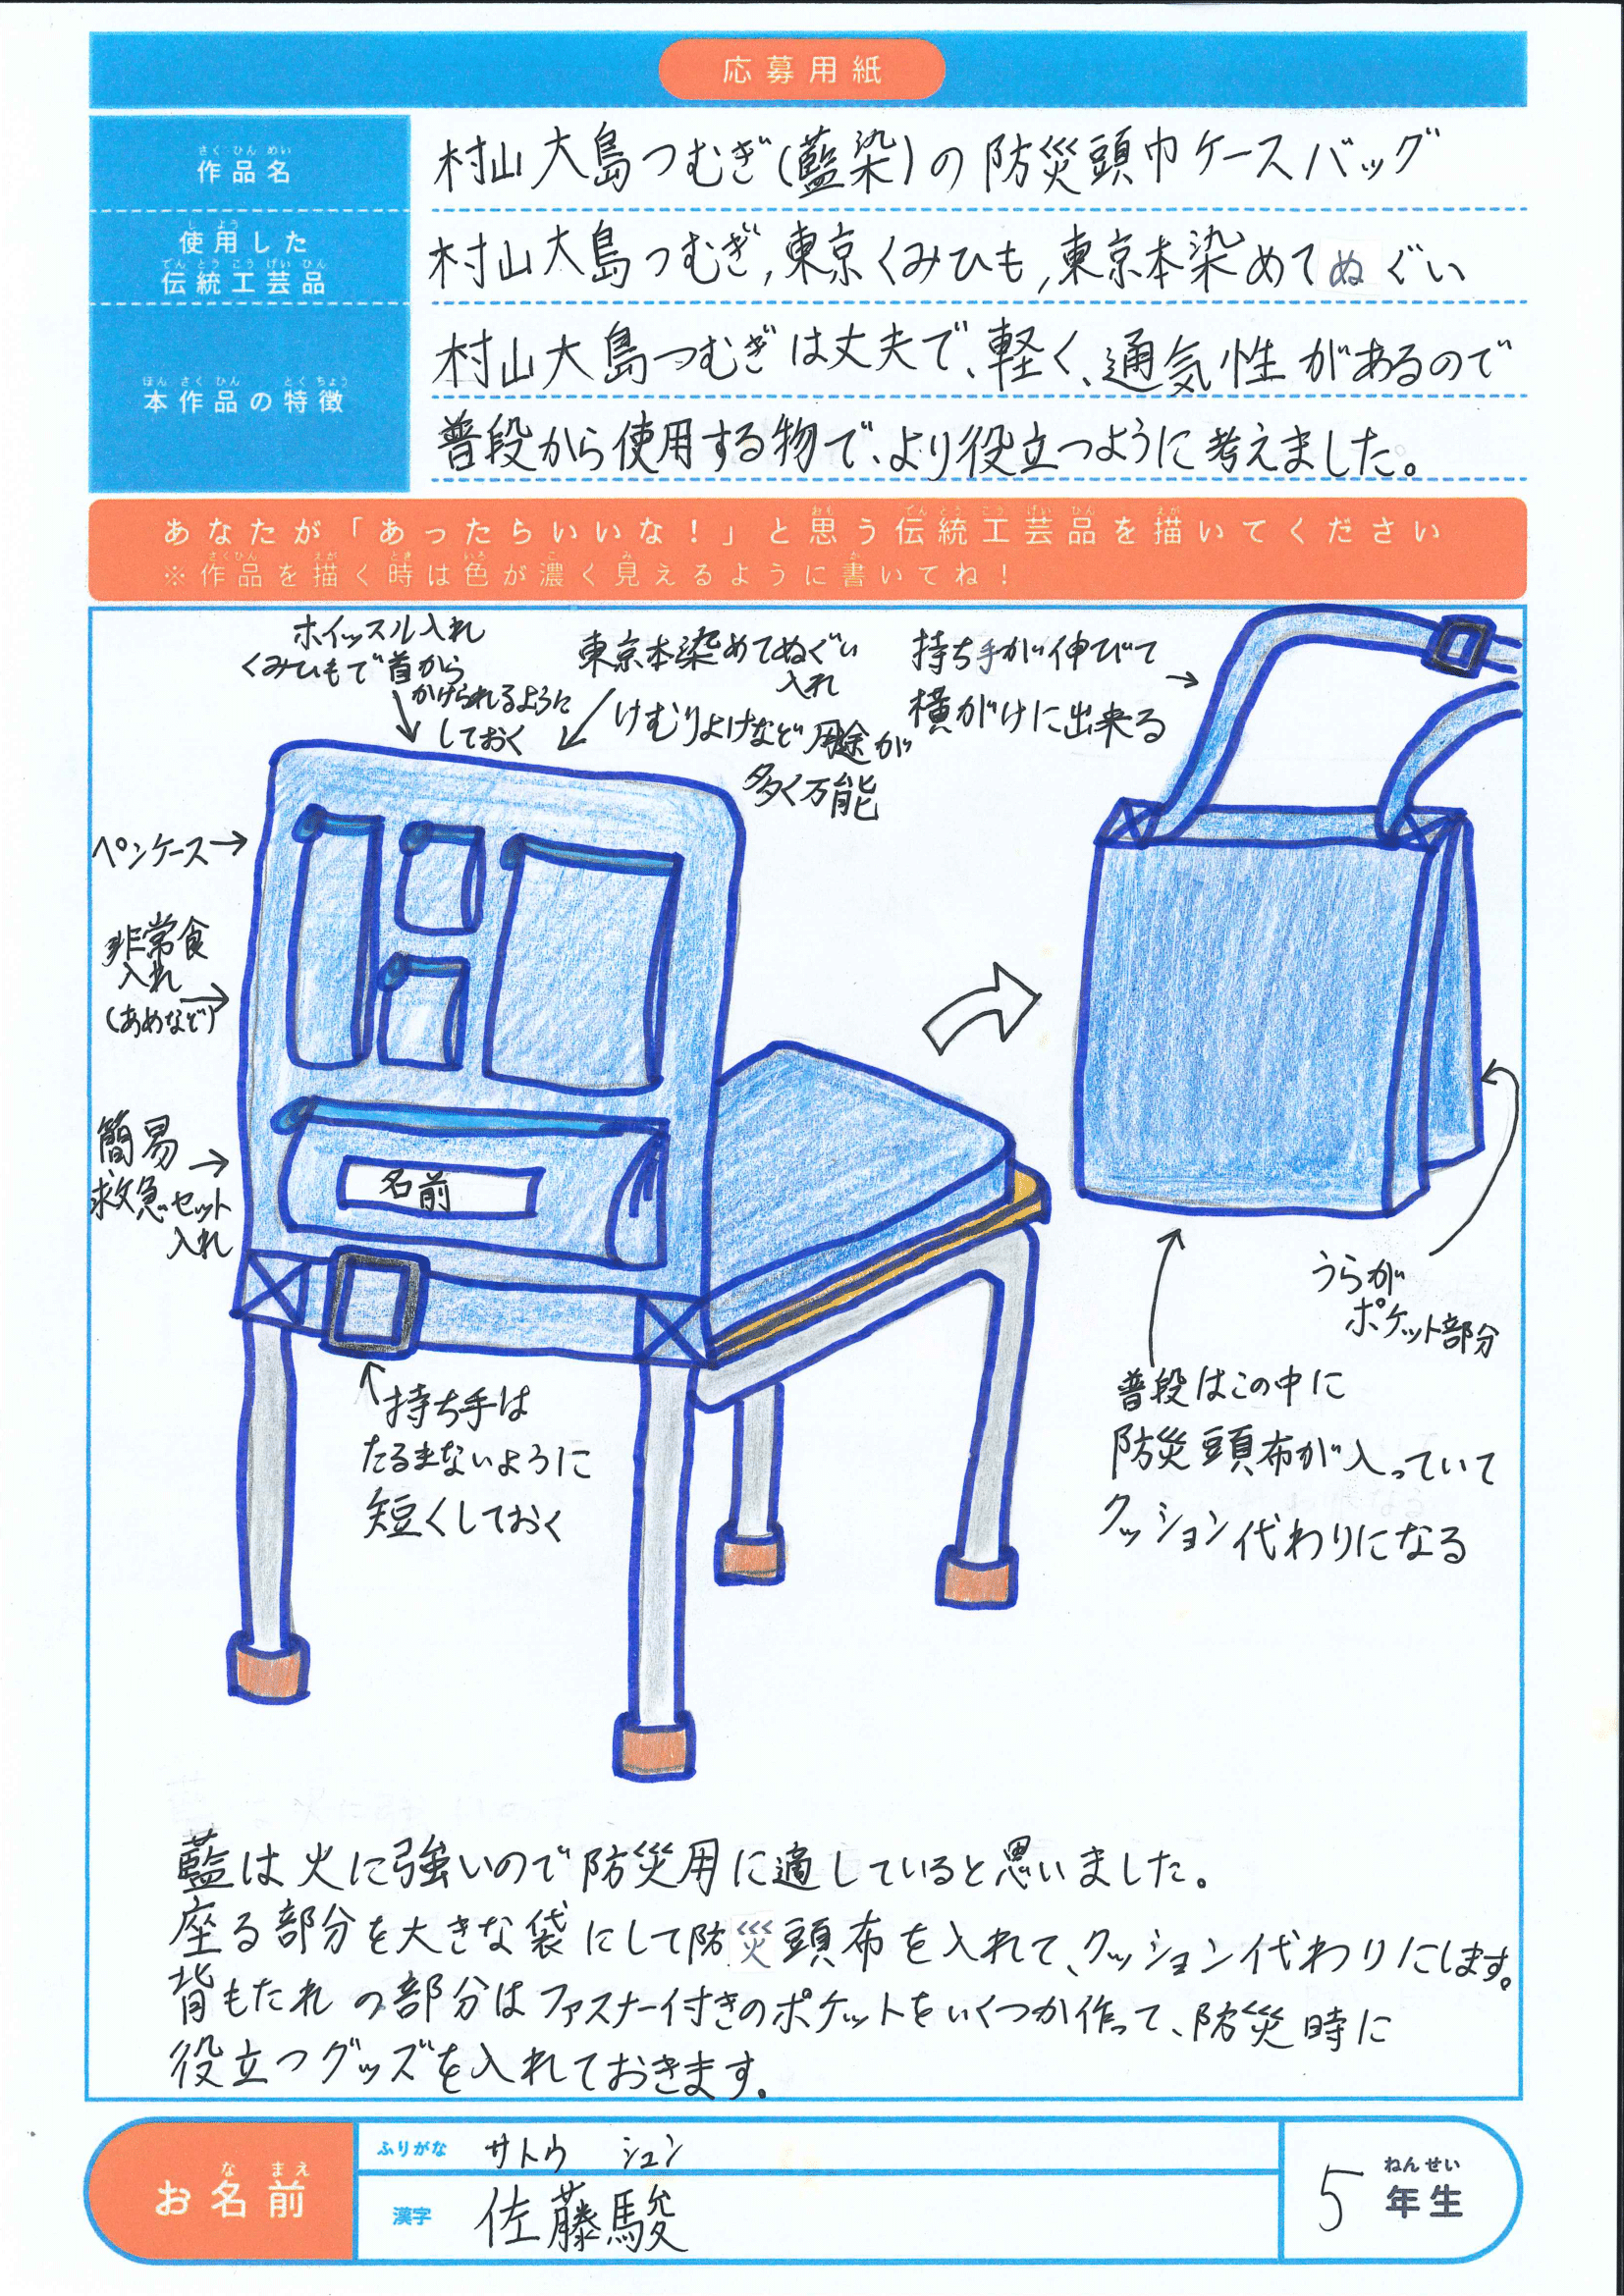 応募用紙
さくひんめい
作品名
村山大島つむぎ(藍染)の防災頭巾ケースバッグ
しよう
使用した
でんとうこうげいひん
伝統工芸品
村山大島つむぎ,東京くみひも,東京本染めてぬぐい
ほんさくひん とくちょう
本作品の特徴
村山大島つむぎは丈夫で、軽く、通気性があるので
普段から使用する物で、より役立つように考えました。
おも でんとうこうげいひん えが
あなたが「あったらいいな!」と思う伝統工芸品を描いてください
さくひん えが とき いろ こ み か
※作品を描く時は色が濃く見えるように書いてね!
ホイッスル入れ
くみひもで首から
かけられるように
しておく
東京本染めてぬぐい
入れ
けむりよけなど用途が
多く万能
持ち手が伸びて
横がけに出来る
ペンケース
非常食
入れ
(あめなど)
簡易
救急セット
入れ
名前
持ち手は
たるまないように
短くしておく
うらが
ポケット部分
普段はこの中に
防災頭布が入っていて
クッション代わりになる
藍は火に強いので防災用に適していると思いました。
座る部分を大きな袋にして防災頭布を入れて、クッション代わりにします。
背もたれの部分はファスナー付きのポケットをいくつか作って、防災時に
役立つグッズを入れておきます。
なまえ
お名前
ふりがな サトウ シュン
漢字 佐藤駿
ねんせい
5年生